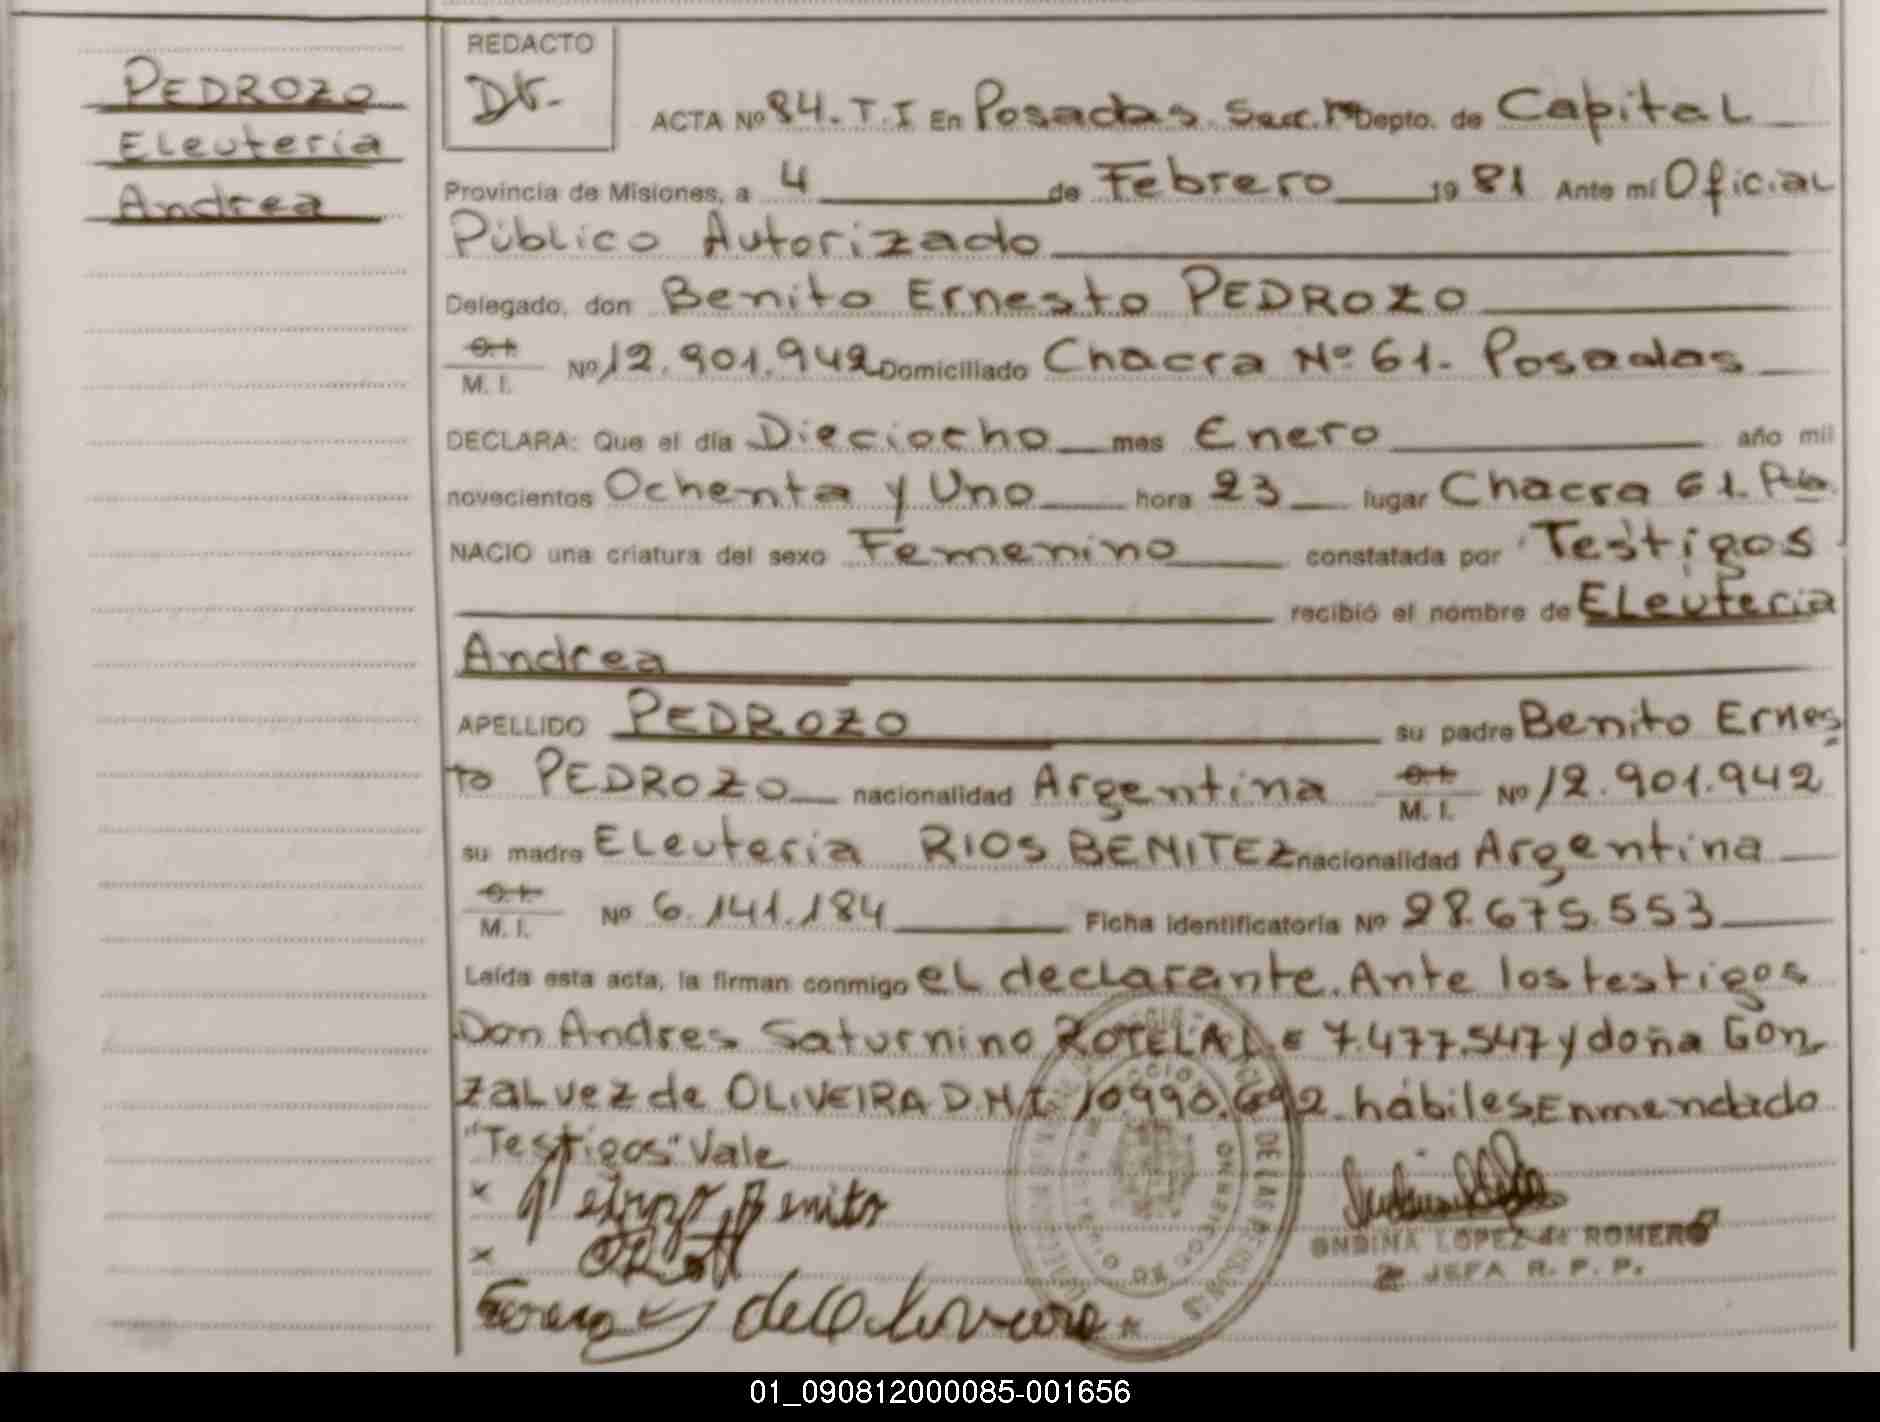 PEDROZO
Eleuteria
Andrea
REDACTO
ACTA Nº 84. T. I En Posadas Secc. 1ª Depto. de Capital
Provincia de Misiones, a 4 de Febrero 19 81 Ante mí Oficial
Público Autorizado
Delegado, don Benito Ernesto PEDROZO
M. I. Nº 12.901.942 Domiciliado Chacra Nº 61. Posadas
DECLARA: Que el día Dieciocho mes Enero año mil
novecientos Ochenta y Uno hora 23 lugar Chacra 61.
NACIO una criatura del sexo Femenino constatada por Testigos
recibió el nombre de Eleuteria
Andrea
APELLIDO PEDROZO su padre Benito Ernes
to PEDROZO nacionalidad Argentina M. I. Nº 12.901.942
su madre Eleuteria RIOS BENITEZ nacionalidad Argentina
M. I. Nº 6.141.184 Ficha identificatoria Nº 28.675.553
Leída esta acta, la firman conmigo el declarante. Ante los testigos
Don Andres Saturnino ROTELA L E 7.477.547 y doña Gon
zalvez de OLIVEIRA D.N.I. 10.990.692 hábiles. Enmendado
"Testigos" Vale
x Pedrozo Benito
x
de Oliveira
DE LAS PERSONAS
ONDINA LOPEZ de ROMERO
JEFA R. P. P.
01_090812000085-001656